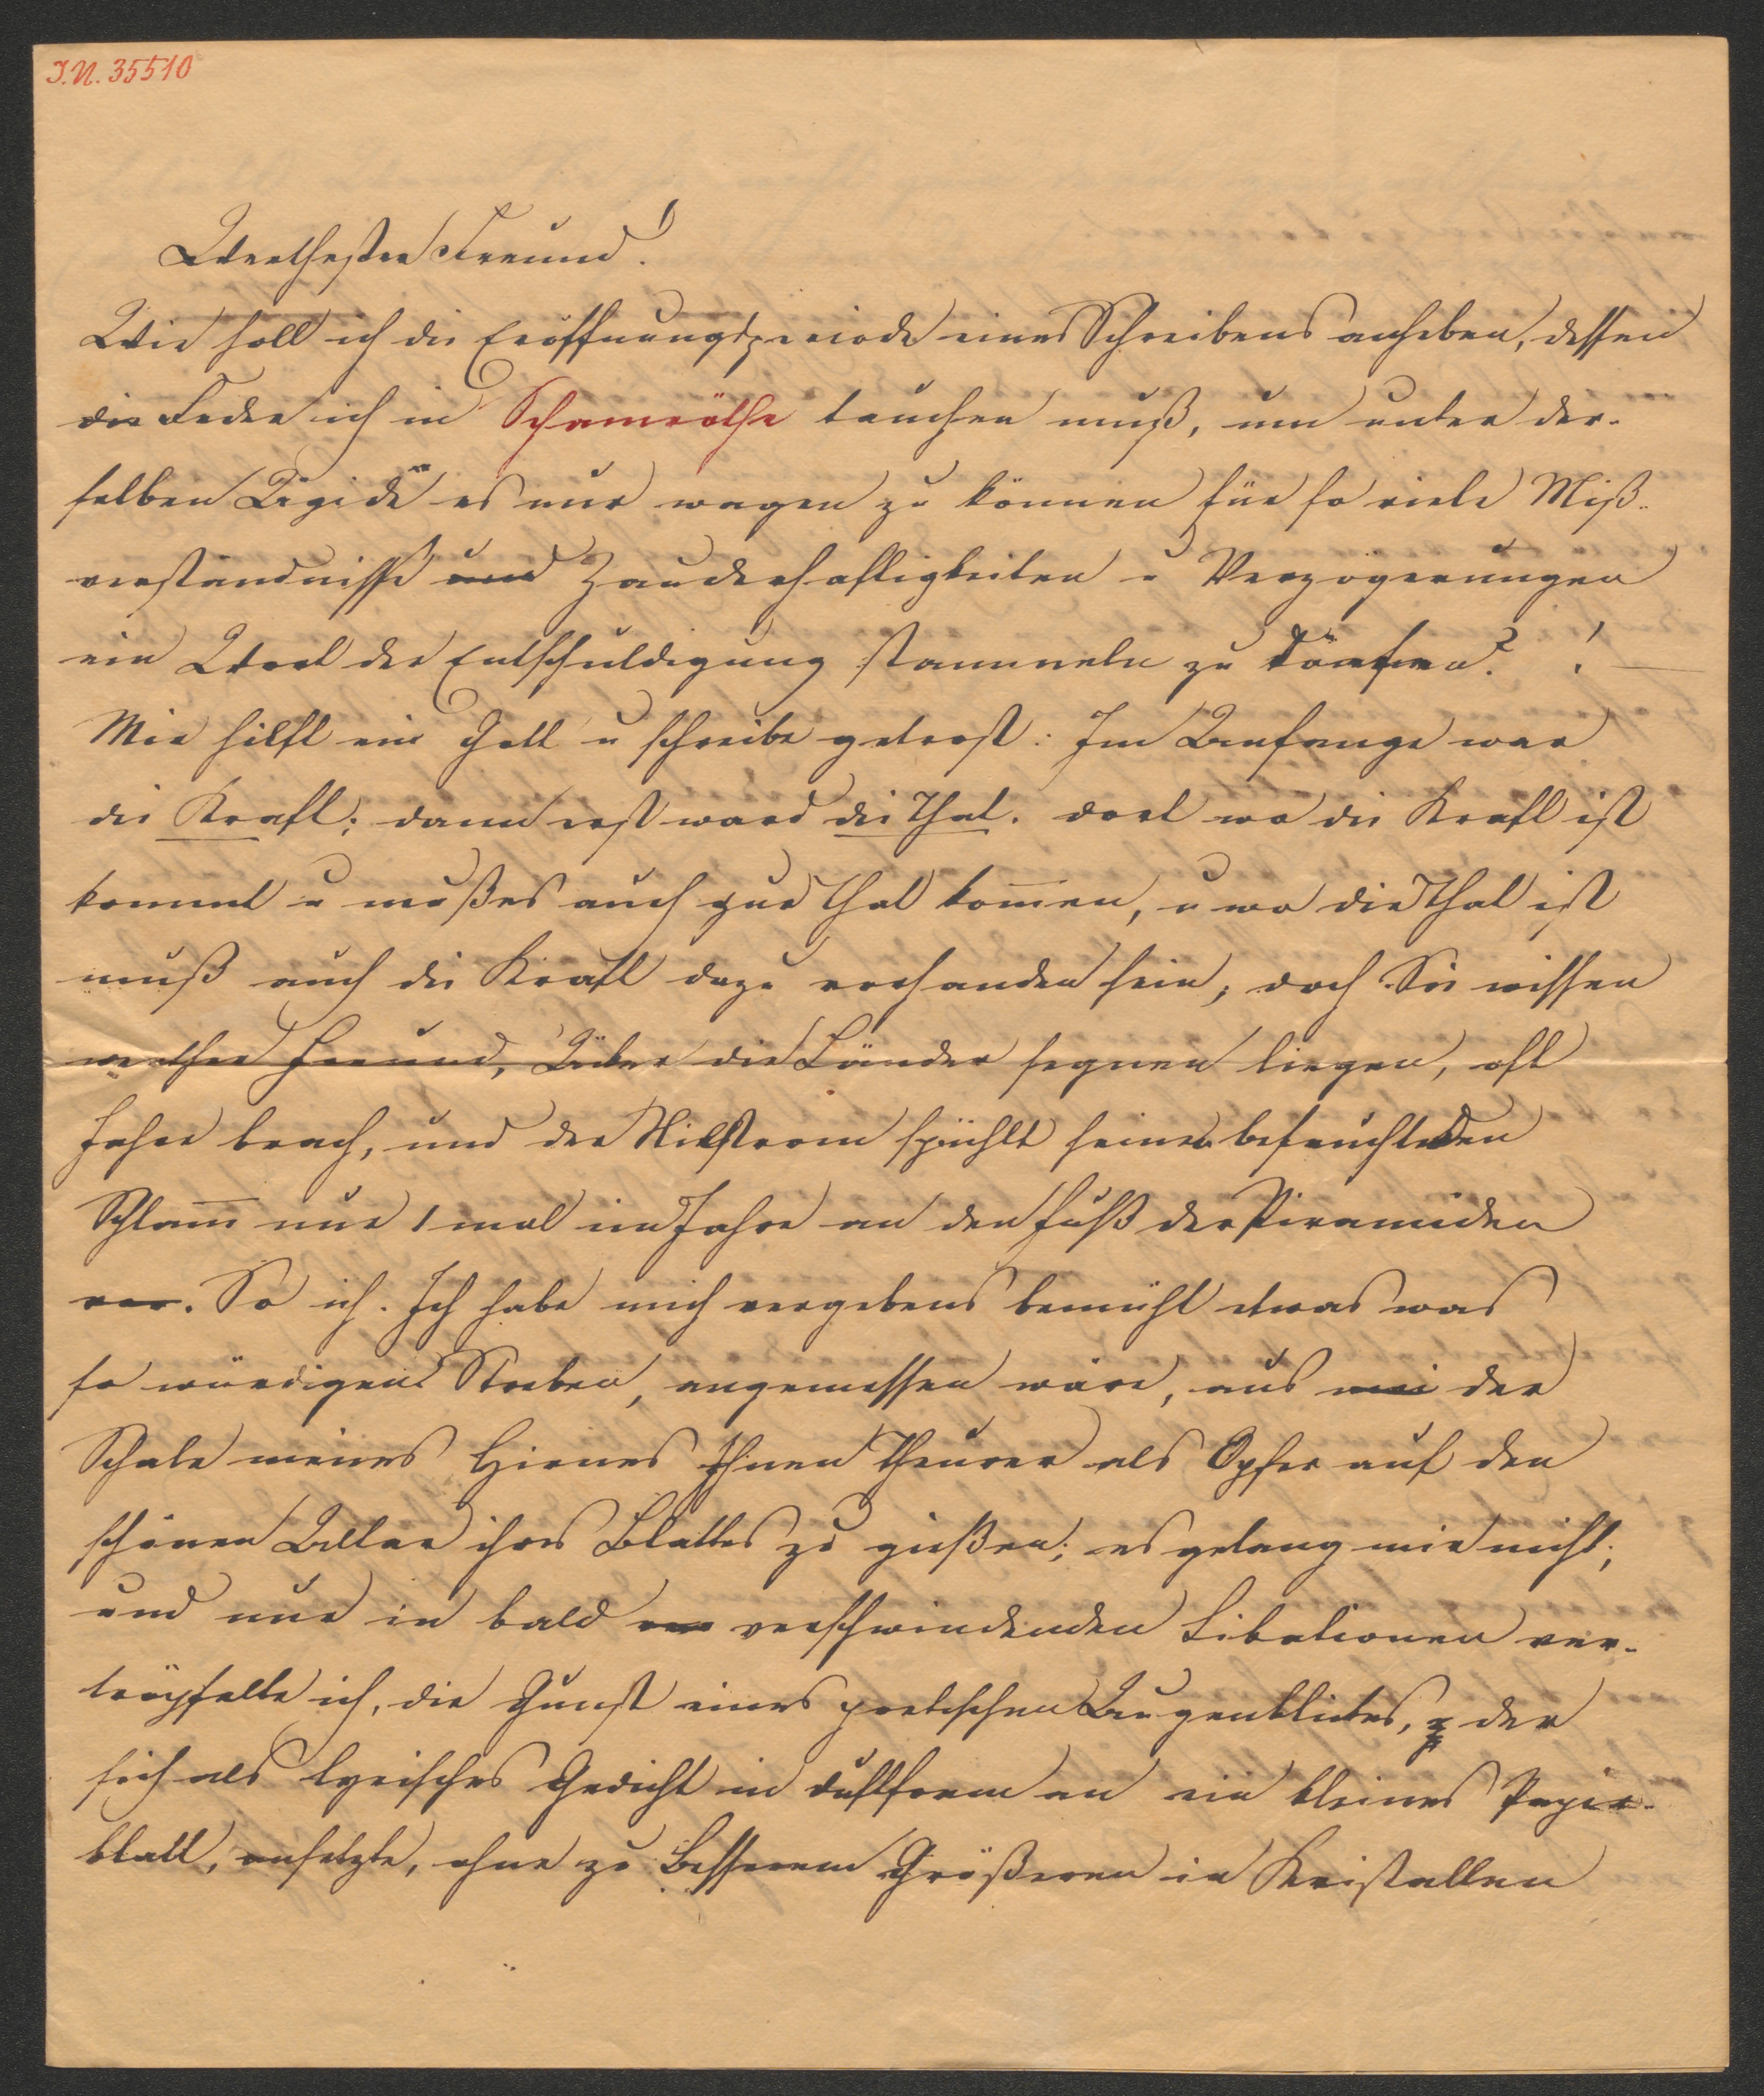 I.N. 35510
Werthester Freund!
Wie soll ich die Eröffnungsperiode eines Schreibens anheben, dessen
die Feder ich in Schamröthe tauchen muß, um unter der-
selben Aegide es nur wagen zu können für so viele Miß-
verständnisse und Zauderhaftigkeiten u Verzögerungen
ein Wort der Entschuldigung stammeln zu dürfen? !
Mir hilft ein Gott u schreibe getrost: Im Anfange war
die Kraft; dann erst ward die That. dort wo die Kraft ist
kommt u muß es auch zur That kom̄en, u wo die That ist
muß auch die Kraft dazu vorhanden sein; doch Sie wissen
werther Freund, Aecker die Länder segnen liegen, oft
Jahre brach, und der Nilstrom spühlt seinen befruchtenden
Schlam̄ nur 1 mal im Jahre an den Fuß der Piramiden
vor. So ich. Ich habe mich vergebens bemüht etwas was
so würdigen Streben, angemessen wäre, aus mei der
Schale meines Hirnes Ihnen Theurer als Opfer auf den
schönen Altar ihres Blattes zu gießen; es gelang mir nicht;
und nur in bald ver verschwindenden Libationen ver-
tröpfelte ich, die Gunst eines poetischen Augenblickes, der
sich als lyrisches Gedicht in Duftform an ein kleines Papier-
blatt, ansetzte, ohne zu Besserem Größeren in Kristallen